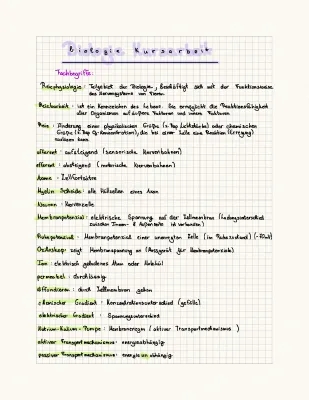 Biologie Kursarbeit
Fachbegriffe:
Reizphysiologie: Teilgebiet der Biologie, beschäftigt sich mit der Funktionsweise
des Nervensystems von Tieren
Reizbarkeit: ist ein Kennzeichen des Lebens. Sie ermöglicht die Reaktionsfähigkeit
der Organismen auf äußere Faktoren und innere Faktoren
Reiz: Änderung einer physikalischen Größe (z.Bsp Lichtstärke) oder chemischen
Größe (z.Bsp O₂-Konzentration), die bei einer Zelle eine Reaktion (Erregung)
auslösen kann
afferent: aufsteigend (sensorische Nervenbahnen)
efferent: absteigend (motorische Nervenbahnen)
Axone: Zellfortsätze
Myelin Scheide: alle Hüllzellen eines Axon
Neuron: Nervenzelle
Membranpotenzial: elektrische Spannung auf der Zellmembran (Ladungsunterschied
zwischen Innen- & Außenseite ist vorhanden)
Ruhepotenzial: Membranpotenzial einer unerregten Zelle (im Ruhezustand)
Oszilloskop: zeigt Membranspannung an (Messgerät für Membranpotenziale)
Ion: elektrisch geladenes Atom oder Molekül
permeabel: durchlässig
diffundieren: durch Zellmembran gehen
chemischer Gradient: Konzentrationsunterschied (gefälle)
elektrischer Gradient: Spannungsunterschied
Natrium-Kalium-Pumpe: Membranenzym (aktiver Transportmechanismus)
aktiver Transportmechanismus: energieabhängig
passiver Transportmechanismus: energieunabhängig